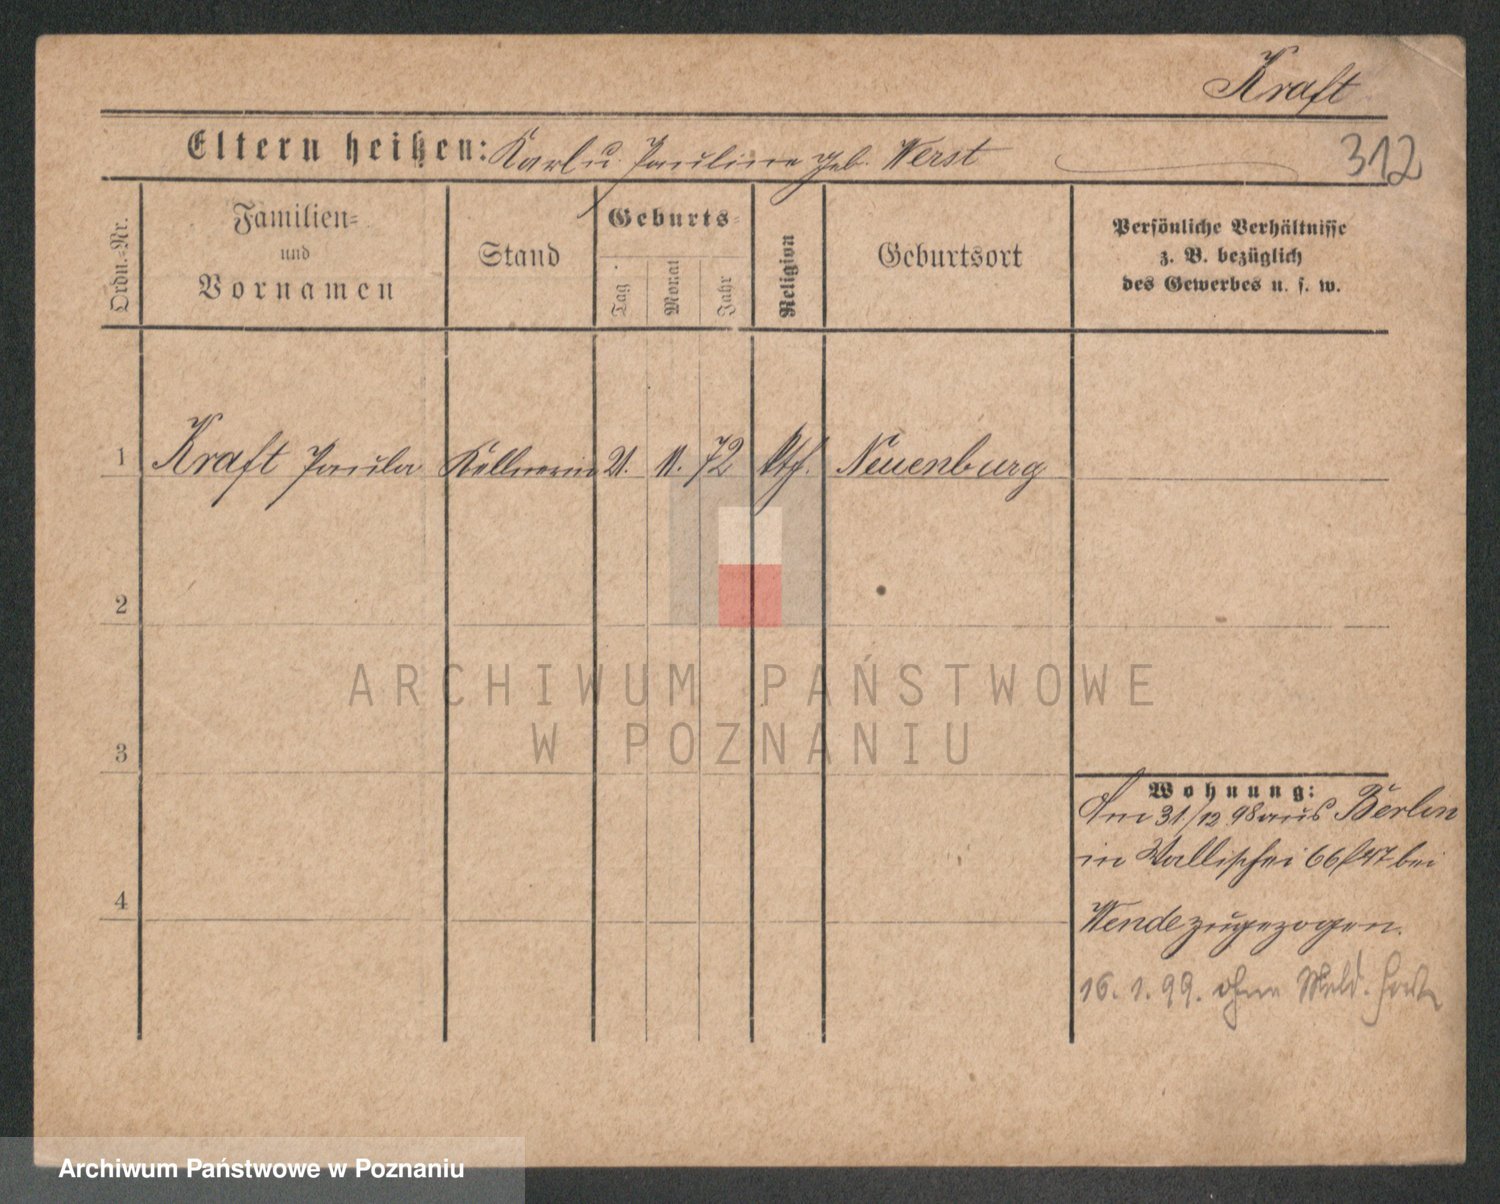 Kraft
Eltern heißen: Karl u. Pauline geb. Werst
312
Ordn.-Nr.
Familien-
und
Vornamen
Stand
Geburts-
Tag
Monat
Jahr
Religion
Geburtsort
Persönliche Verhältnisse
z. B. bezüglich
des Gewerbes u. s. w.
1 Kraft Paula Kellnerin 21. 11. 72 Neuenburg
2
3
4
Wohnung:
Am 31/12 98 aus Berlin
in Wallischei 66/47 bei
Wende zugezogen.
16. 1. 99. ohne Meld.
ARCHIWUM PAŃSTWOWE
W POZNANIU
Archiwum Państwowe w Poznaniu